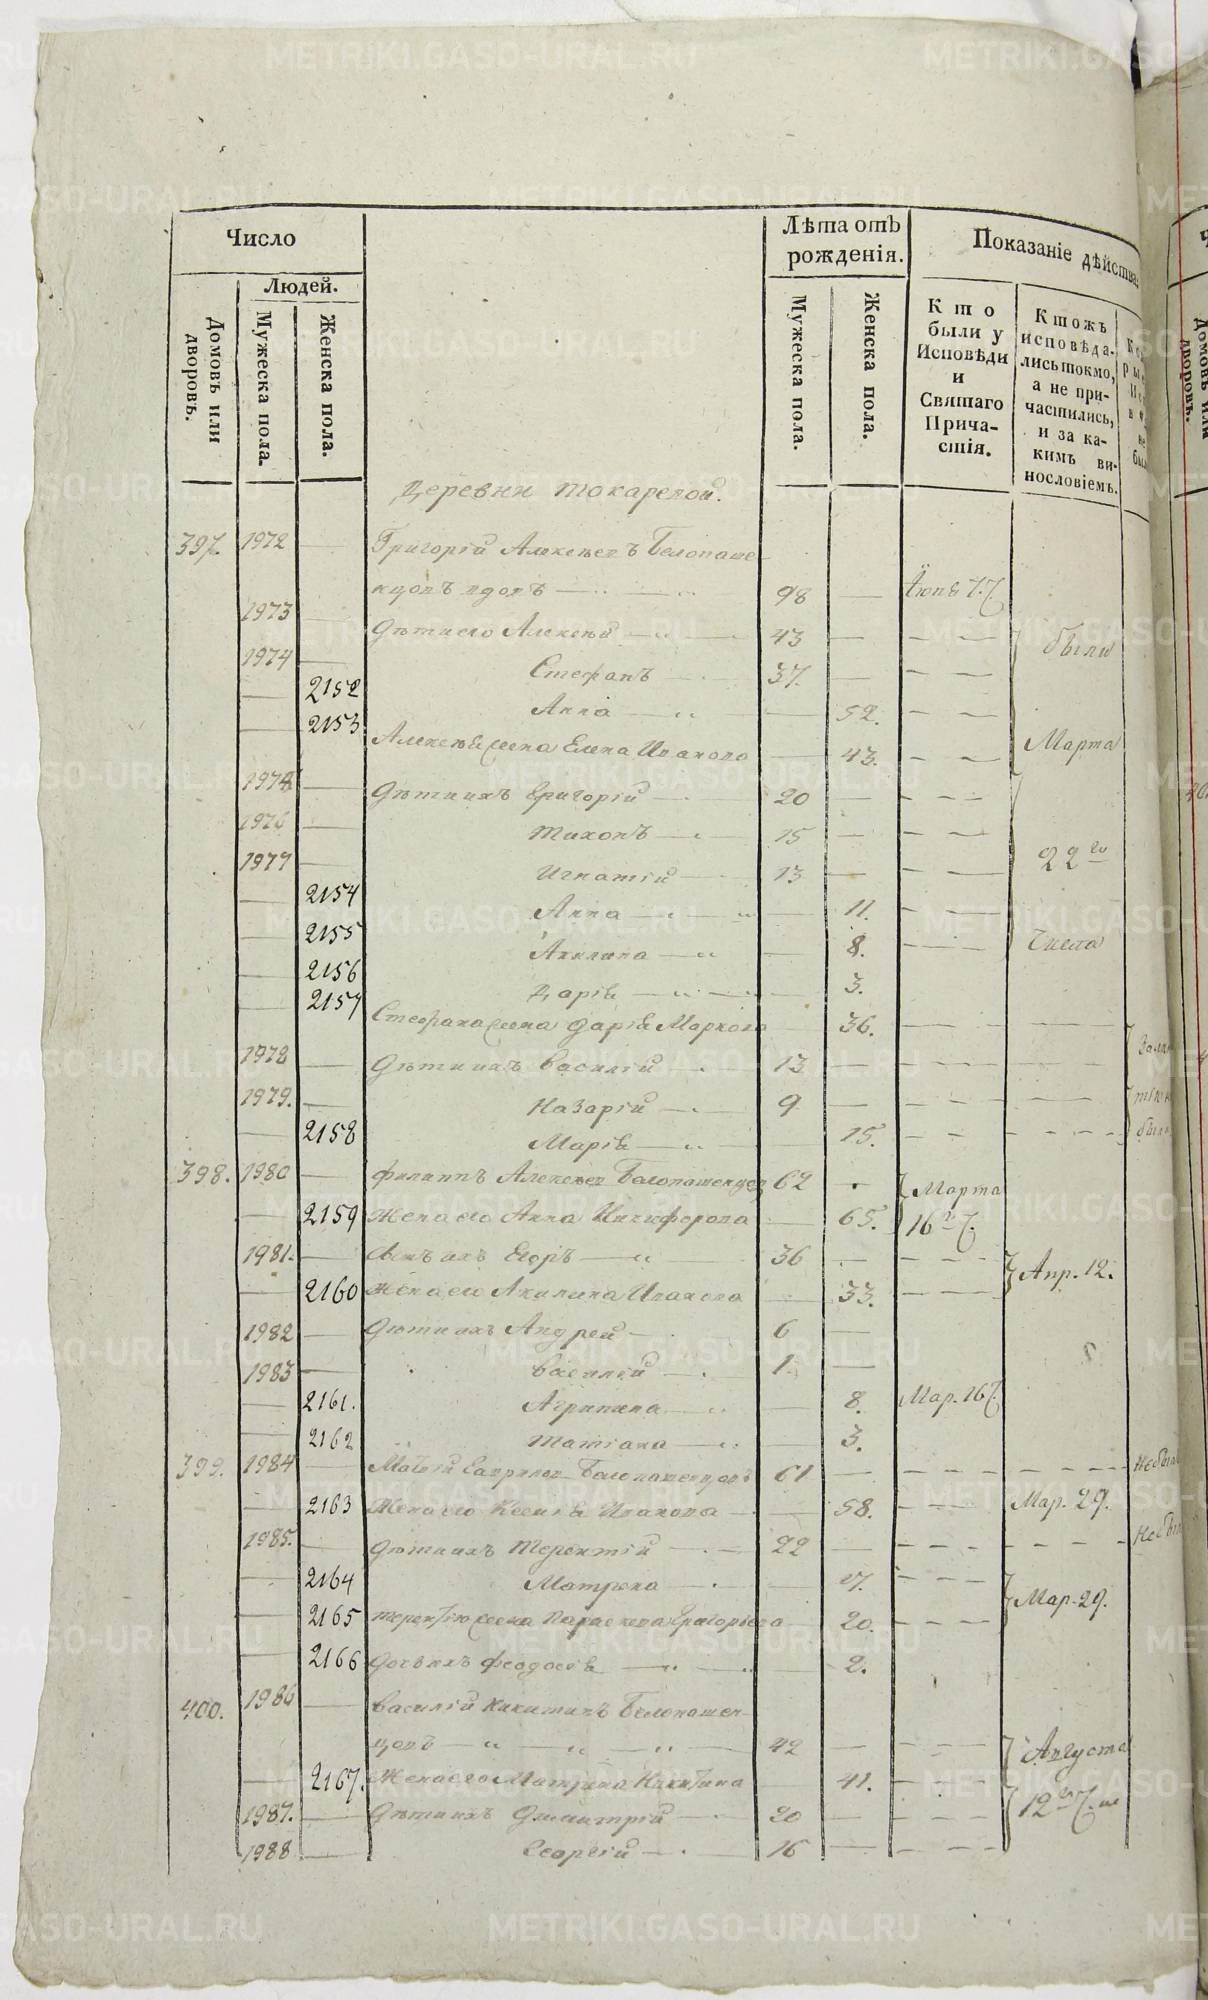 Число
Лѣта отъ рожденія.
Показаніе дѣйства
Людей.
Домовъ или дворовъ.
Мужеска пола.
Женска пола.
Мужеска пола.
Женска пола.
Кто были у Исповѣди и Святаго Причастія.
Ктожъ исповѣдались токмо, а не причастились, и за какимъ винословіемъ.
Деревни Токаревой.
397. 1972 — Григорій Алексѣевъ Белопаше-
нцовъ вдовъ — 98 — Іюня 7.
1973 — Дѣти его Алексѣй — 43 — были
1974 — Стефанъ — 37. —
— 2152 Анна — 52.
— 2153 Алексѣя жена Елена Иванова — 43. Марта
1975 — Дѣти ихъ Григорій — 20 —
1976 — Тихонъ — 15 —
1977 — Игнатій — 13 — 22 го
— 2154 Анна — 11.
— 2155 Акилина — 8. Числа
— 2156 Дарія — 3.
— 2157 Стефана жена Дарія Маркова — 36.
1978 — Дѣти ихъ Василій — 13 —
1979. — Назарій — 9 —
— 2158 Марія — 15.
398. 1980 — Филиппъ Алексѣев Белопашенцов 62 Марта
— 2159 Жена его Анна Никифорова — 65. 16
1981. — Сынъ ихъ Егоръ — 36 Апр. 12.
— 2160 Жена его Акилина Иванова 33.
1982 — Дѣти ихъ Андрей — 6 —
1983 — Василій — 1. —
— 2161. Агрипина — 8. Мар. 16
— 2162 Татіана — 3.
399. 1984 — Гаврилов Белопашенцовъ 61 —
— 2163 Жена его Ксенія Иванова — 58. Мар. 29.
1985. — Дѣти ихъ Терентій — 22 —
— 2164 Матрена —
— 2165 Терентію жена Параскева Григорьева 20. Мар. 29.
— 2166 Дочь ихъ Феодосія — 2.
400. 1986 — Василій Никитинъ Белопашен-
цовъ — 42 — Августа
— 2167. Жена его Матрена Никитина 41. 12
1987. — Дѣти ихъ Димитрій — 20 —
1988 — Георгій — 16 —
METRIKI.GASO-URAL.RU